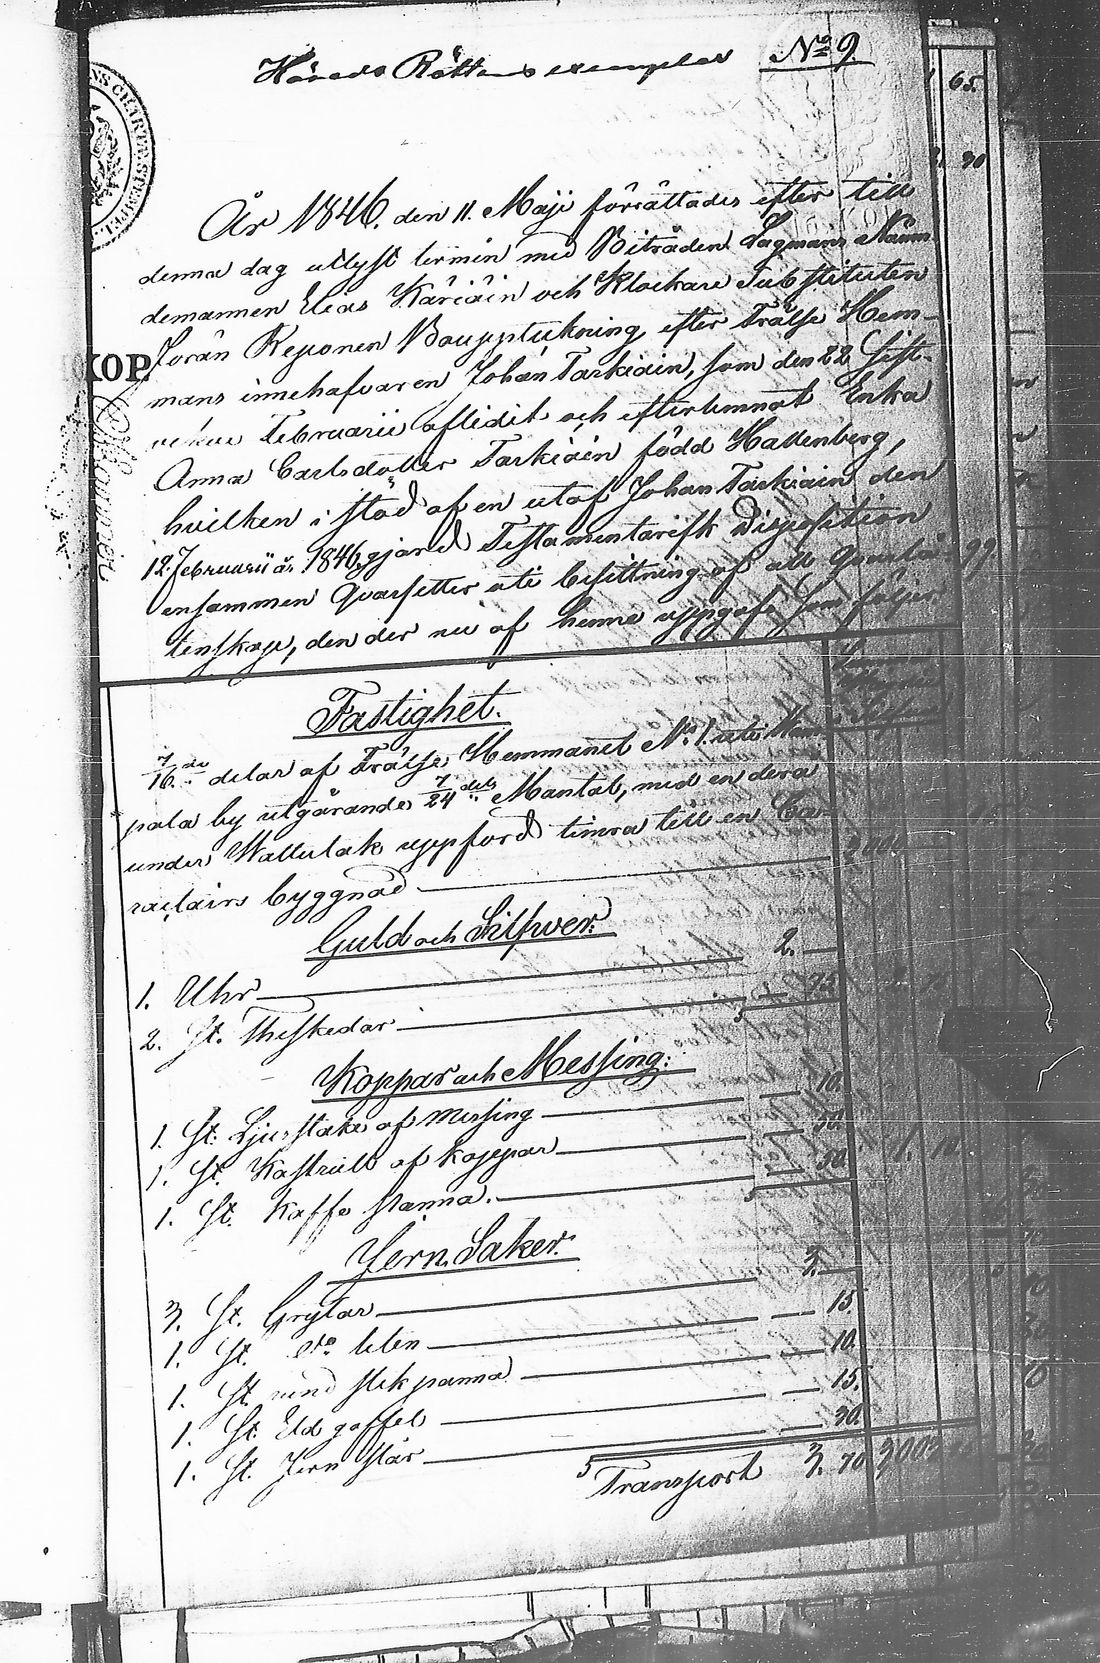 Härads Rättens exemplar No 9
År 1846. den 11. Maji förrättades efter till
denna dag utlyst termin med Biträden Lagmans Näm
demannen Elias Käriäin och Klockare Substituten
Jöran Reponen Bouppteckning efter Frälse Hem-
mans innehafvaren Johan Tarkiain, som den 22 sist-
Februarii aflidit och efterlemnat Enka
Anna Carlsdotter Tarkiain född Hallenberg,
hvilken i stöd af en utaf Johan Tarkiain den
12. Februarii år 1846 gjord Testamentarisk Disposition
ensammen qvarsitter uti besittning af all qvarlå
tenskap, den der nu af henne uppgafs som följer
KOP
Fastighet.
7/16 de delar af Frälse Hemmanet No 1. uti
pala by utgörande 7/24 dels Mantal, med en dera
under Wattutak uppförd timra till en Ca-
racteirs byggnad
Guld och Silfwer.
1. Uhr 2. —
2. St. Theskedar 75
Koppar och Messing:
1. St. Ljusstake af messing 10.
1. St. Kastrull af koppar 50.
1. St. Kaffe panna. 50.
Jern Saker.
3. St. Grytor 3. —
1. St. do liten 15
1. St. rund stekpanna 10.
1. St. Eld gaffel 15.
1. St. Jern stör 30.
Transport 3. 70 3003